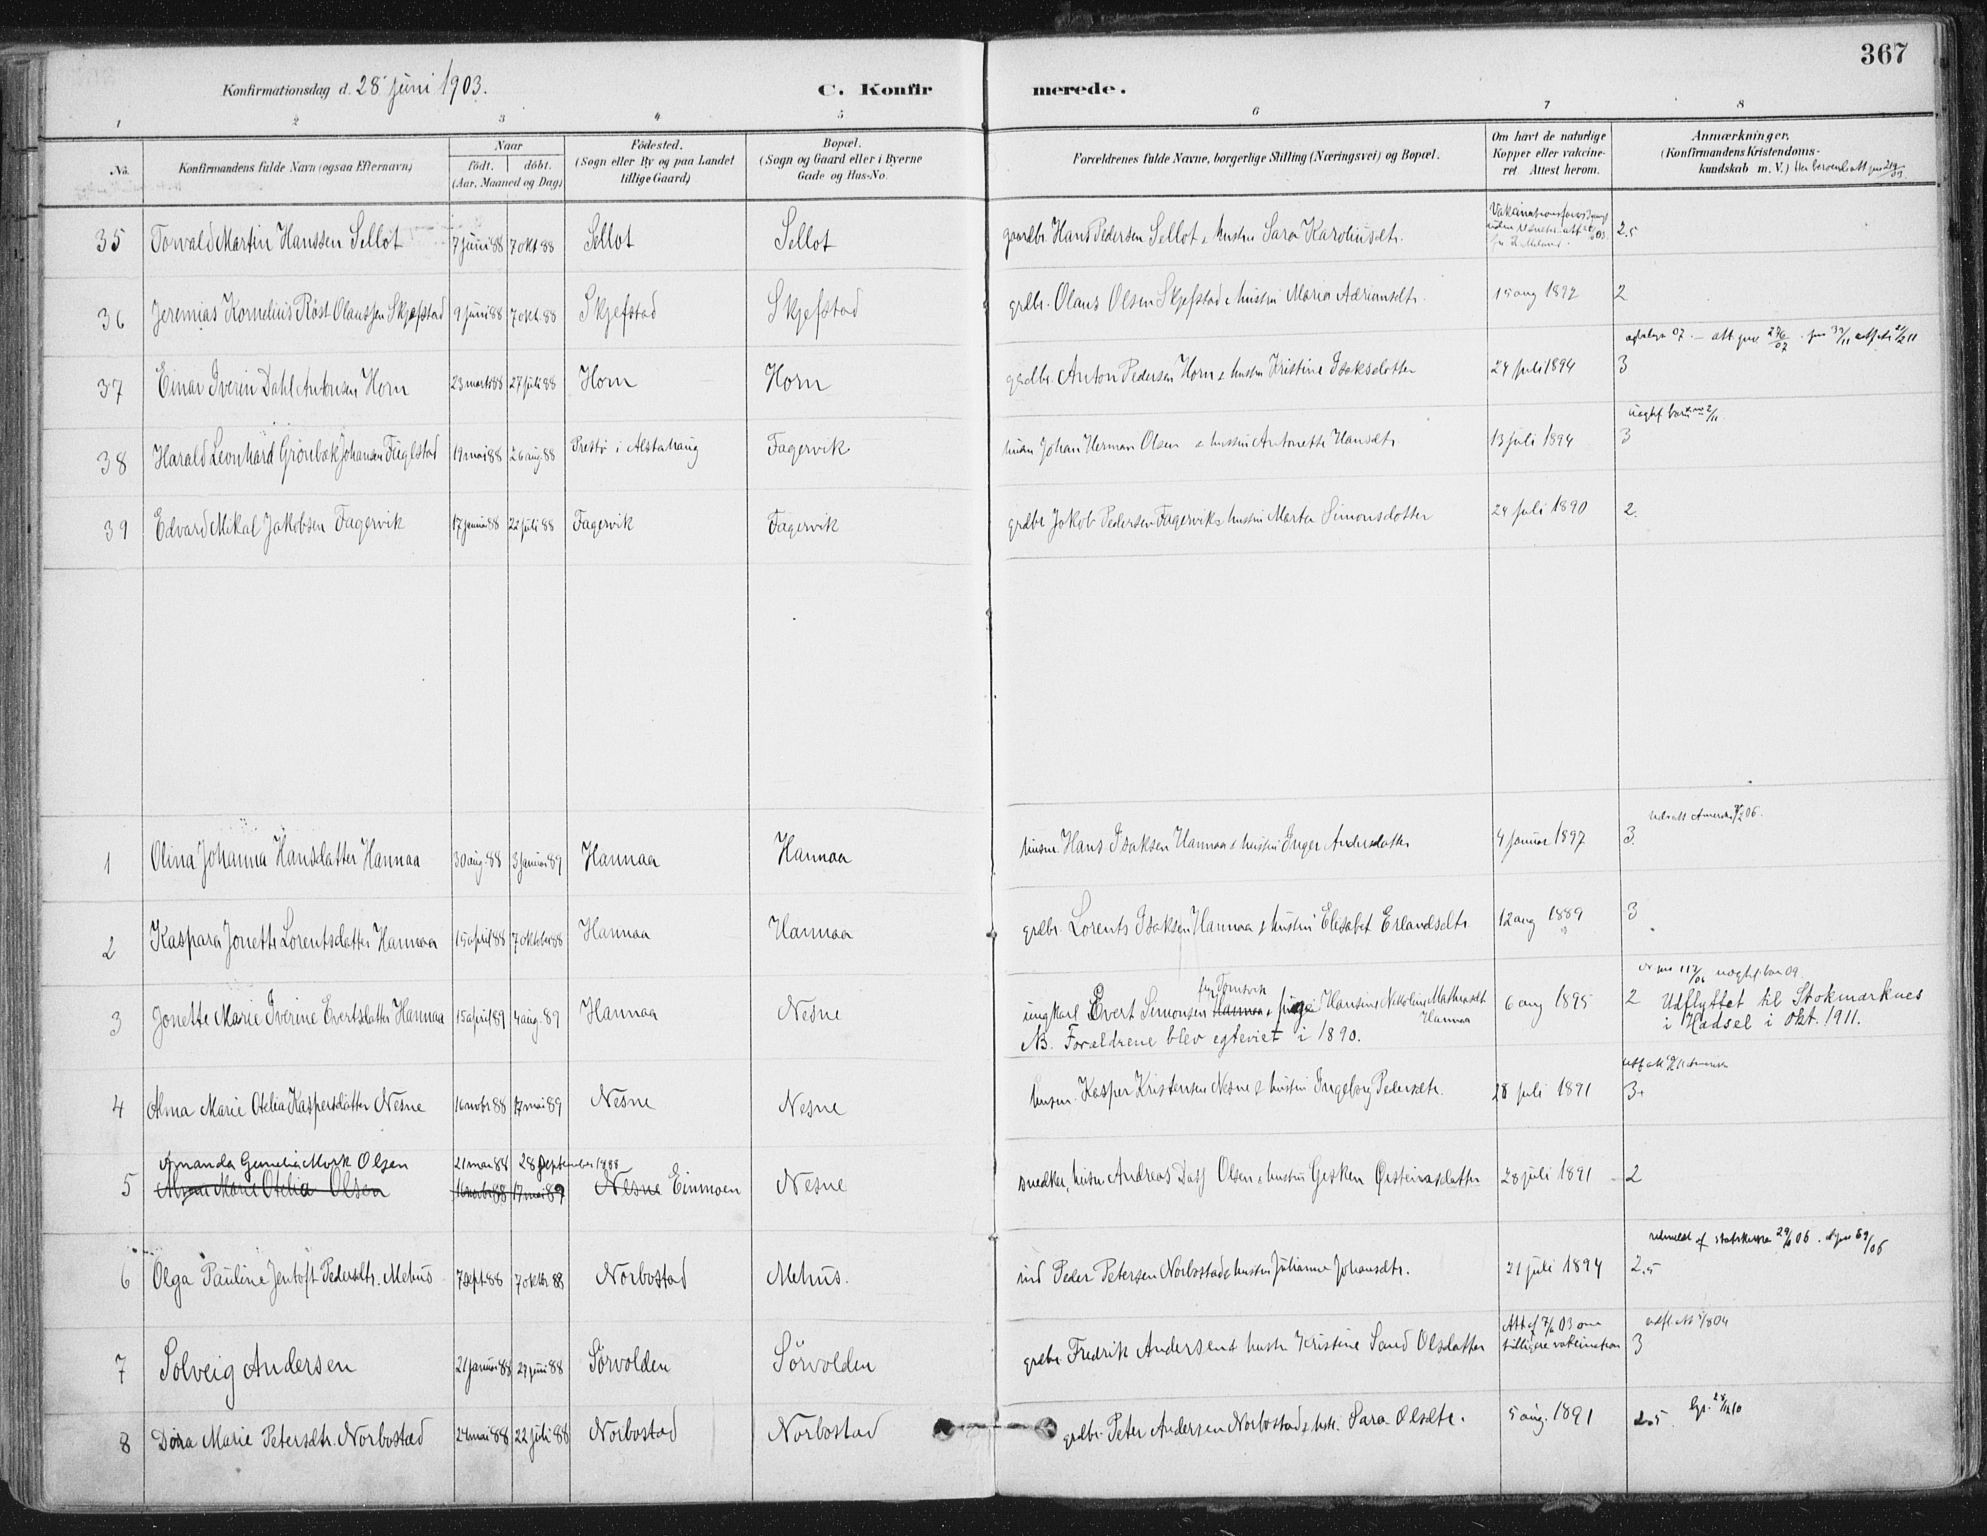 367
Konfirmationsdag d. 28 juni 1903. C. Konfirmerede.
1 2 3 4 5 6 7 8
No. Konfirmandens fulde Navn (ogsaa Efternavn) Naar födt. döbt. (Aar, Maaned og Dag) Födested. (Sogn eller By og paa Landet tillige Gaard) Bopæl. (Sogn og Gaard eller i Byerne Gade og Hus-No. Forældrenes fulde Navne, borgerlige Stilling (Næringsvei) og Bopæl. Om havt de naturlige Kopper eller vakcineret. Attest herom. Anmærkninger. (Konfirmandens Kristendomskundskab m. V.)
35 Torvald Martin Hanssen Sellot 7 juni 88 7 okt 88 Sellot Sellot gaardbr. Hans Pedersen Sellot & hustru Sara Karoliusdtr. 2.5
36 Jeremias Kornelius Røst Olaussen Skjefstad 9 juni 88 7 okt. 88 Skjefstad Skjefstad grdbr. Olaus Olsen Skjefstad & hustru Maria Adriansdtr. 15 aug 1892 2
37 Einar Iverin Dahl Antonsen Horn 23 marts 88 27 juli 88 Horn Horn grdbr. Anton Pedersen Horn & hustru Kristine Isaksdatter 24 juli 1894 3
38 Harald Leonhard Grønbæk Johansen Fuglstad 19 mai 88 26 aug. 88 Prestø i Alstahaug Fagervik husm Johan Herman Olsen & hustru Antonette Hansdtr. 13 juli 1894 3
39 Edvard Mikal Jakobsen Fagervik 17 juni 88 22 juli 88 Fagervik Fagervik grdbr Jakob Pedersen Fagervik & hustru Marta Simonsdotter 24 juli 1890 2.
1 Olina Johanna Hansdatter Hannaa 30 aug. 88 3 januar 89 Hannaa Hannaa husm. Hans Isaksen Hannaa & hustru Inger Andersdatter 4 januar 1897 3.
2 Kaspara Jonette Lorentsdatter Hannaa 15 april 88 7 oktober 88 Hannaa Hannaa grdbr. Lorents Isaksen Hannaa & hustru Elisabet Erlandsdtr. 12 aug 1889 3
3 Jonette Marie Iverine Evertsdatter Hannaa 15 april 89 4 aug. 89 Hannaa Nesne ungkarl Evert Simonsen Hannaa & pige Hansine Nikoline Mathiasdtr Hannaa 6 aug 1895 2 Udflyttet til Stokmarknes
NB. Forældrene blev egteviet i 1890. i Hadsel i okt. 1911.
4 Alma Marie Otelia Kaspersdatter Nesne 16 novbr 88 17 mai 89 Nesne Nesne husm. Kasper Kristensen Nesne & hustru Ingeborg Pedersdtr. 28 juli 1891 3.
Amanda Gunelia Mork Olsen 21 mai 88 28 september 1888
5 Alma Marie Otelia Olsen 16 novbr 88 17 mai 89 Nesne Einmoen Nesne snedker, husm Andreas Dass Olsen & hustru Gjesken Øisteinsdatter 28 juli 1891 2
6 Olga Pauline Jentoft Pedersdtr. Mehus 7 sept 88 7 oktbr 88 Norbostad Mehus. ind Peder Petersen Norbostad & hustru Julianne Johansdtr. 21 juli 1894 2.5
7 Solveig Andersen 21 januar 88 29 juni 88 Sörvolden Sörvolden grdbr Fredrik Andersen & hustr. Kristine Sand Olsdatter Att af 7/6 03 om tidligere vakcination 3
8 Dora Marie Petersdtr. Norbostad 24 mai 88 22 juli 88 Norbostad Norbostad grdbr. Peter Andersen Norbostad & hstr. Sara Olsdtr. 5 aug. 1891 2.5